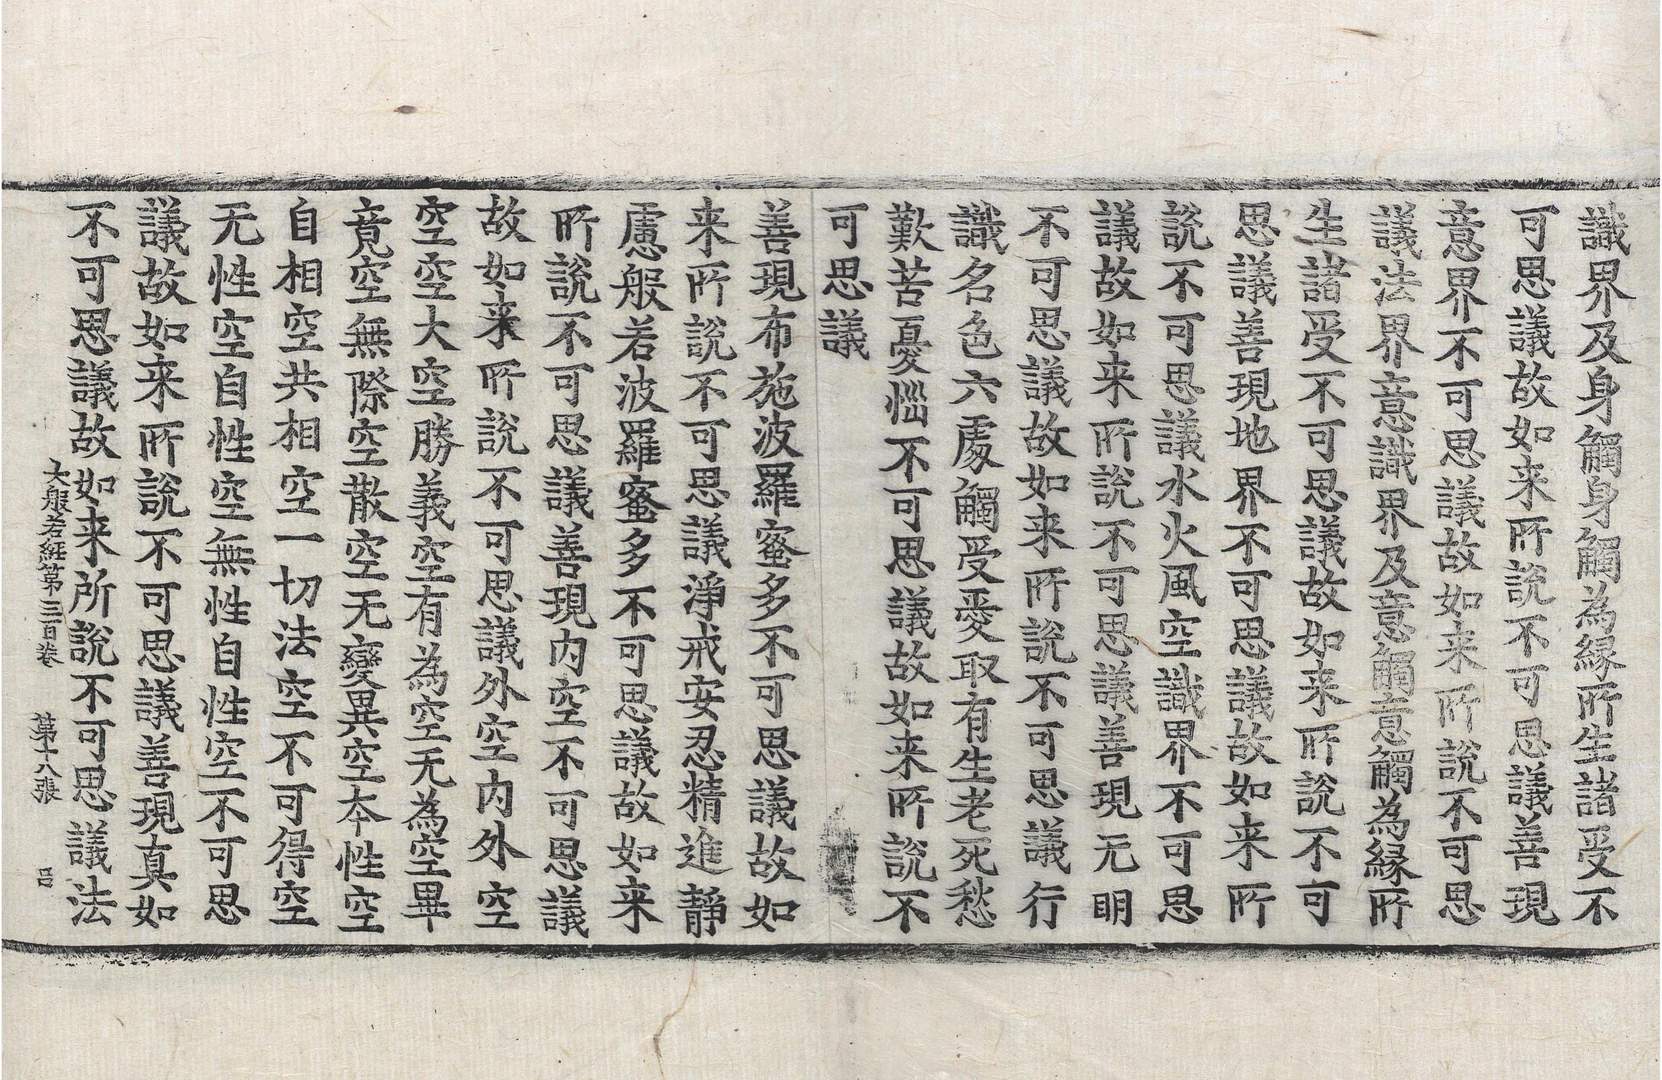 識界及身觸身觸為緣所生諸受不
可思議故如来所說不可思議善現
意界不可思議故如来所說不可思
議法界意識界及意觸意觸為緣所
生諸受不可思議故如来所說不可
思議善現地界不可思議故如来所
說不可思議水火風空識界不可思
議故如来所說不可思議善現无明
不可思議故如来所說不可思議行
識名色六處觸受愛取有生老死愁
歎苦憂惱不可思議故如来所說不
可思議
善現布施波羅蜜多不可思議故如
来所說不可思議淨戒安忍精進靜
慮般若波羅蜜多不可思議故如来
所說不可思議善現内空不可思議
故如来所說不可思議外空内外空
空空大空勝義空有為空无為空畢
竟空無際空散空无變異空本性空
自相空共相空一切法空不可得空
无性空自性空無性自性空不可思
議故如来所說不可思議善現真如
不可思議故如来所說不可思議法
大般若經第三百卷 第十八張 呂